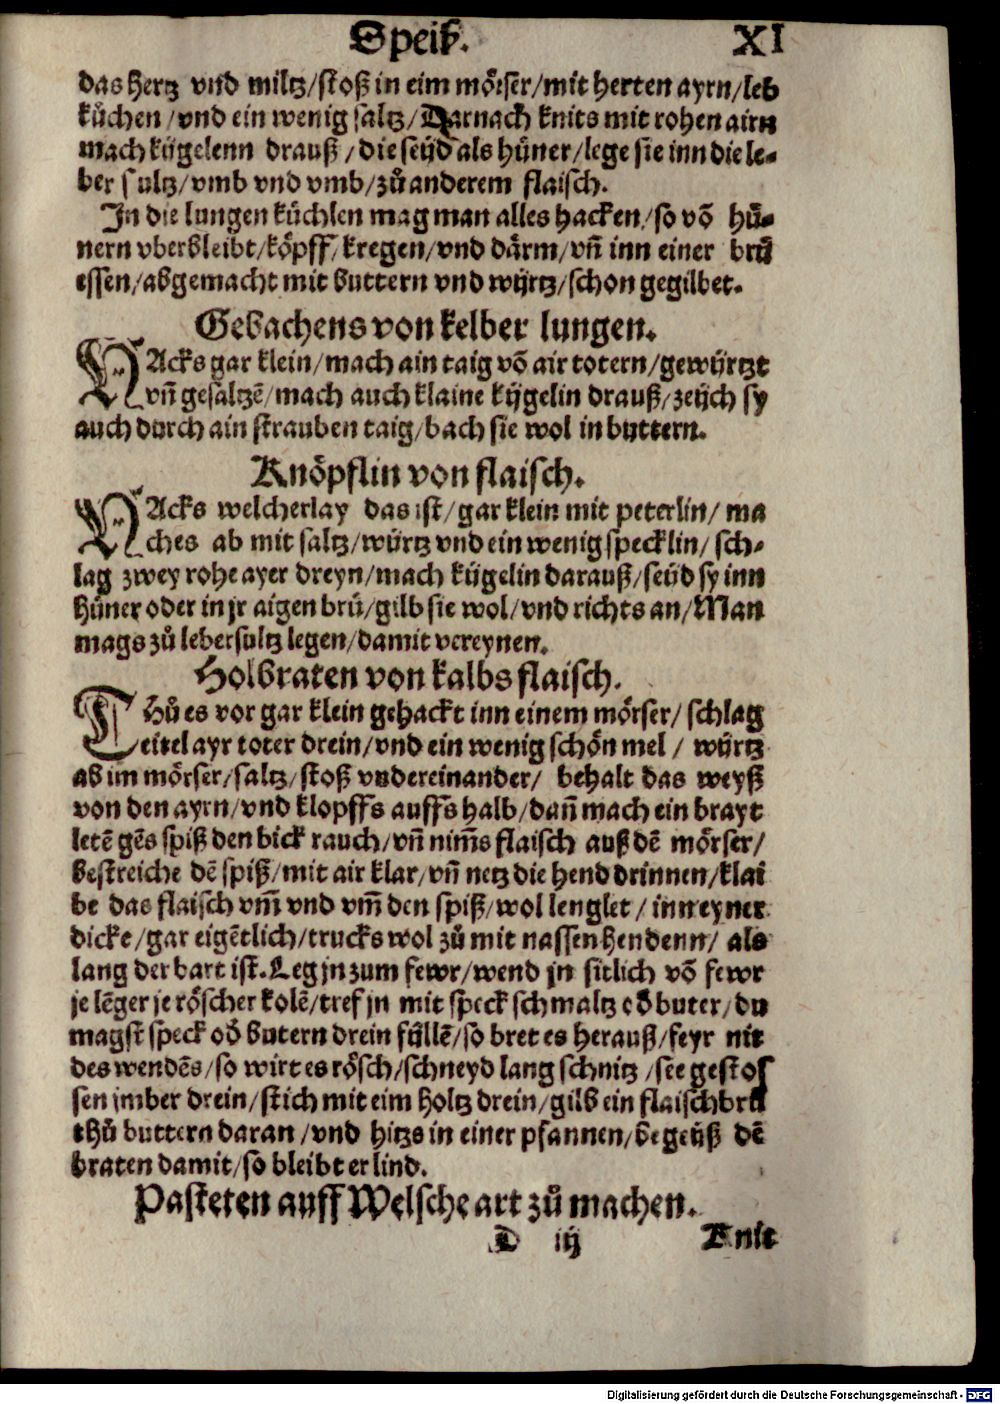 Speiß. XI
das hertz vnd miltz/stoß in eim mörser/mit herten ayrn/leb
kůchen/vnd ein wenig saltz/Darnach knits mit rohen airn
mach kügelenn drauß/die seüd als hüner/lege sie inn die le-
ber sultz/vmb vnd vmb/zů anderem flaisch.
In die lungen küchlen mag man alles hacken/so võ hü-
nern vberbleibt/köpff/kregen/vnd därm/vñ inn einer brü
essen/abgemacht mit buttern vnd würtz/schon gegilbet.
Gebachens von kelber lungen.
HAcks gar klein/mach ain taig võ air totern/gewürtzt
vñ gesaltzẽ/mach auch klaine kügelin drauß/zeüch sy
auch durch ain strauben taig/bach sie wol in buttern.
Knöpflin von flaisch.
HAcks welcherlay das ist/gar klein mit peterlin/ma
ches ab mit saltz/würtz vnd ein wenig specklin/sch-
lag zwey rohe ayer dreyn/mach kügelin darauß/seüd sy inn
hüner oder in jr aigen brü/gilb sie wol/vnd richts an/Man
mags zů lebersultz legen/damit vereynen.
Holbraten von kalbs flaisch.
THů es vor gar klein gehackt inn einem mörser/schlag
eitel ayr toter drein/vnd ein wenig schön mel/würtz
ab im mörser/saltz/stoß vndereinander/behalt das weyß
von den ayrn/vnd klopffs auffs halb/dañ mach ein brayt
letẽ gẽs spiß den bick rauch/vñ nim̃s flaisch auß dẽ mörser/
bestreiche dẽ spiß/mit air klar/vñ netz die hend drinnen/klai
be das flaisch vm̃ vnd vm̃ den spiß/wol lenglet/inn eyner
dicke/gar eigẽtlich/trucks wol zů mit nassen hendenn/als
lang der bart ist. Leg jn zum fewr/wend jn sitlich võ fewr
je lẽger je röscher kolẽ/tref jn mit speck schmaltz od̃ buter/du
magst speck od̃ butern drein füllẽ/so bret es herauß/feyr nit
des wendẽs/so wirt es rösch/schneyd lang schnitz/see gestos
sen imber drein/stich mit eim holtz drein/gilb ein flaischbrü
thů buttern daran/vnd hitzs in einer pfannen/begeüß dẽ
braten damit/so bleibt er lind.
Pasteten auff Welsche art zů machen.
D iij Knit
Digitalisierung gefördert durch die Deutsche Forschungsgemeinschaft - DFG